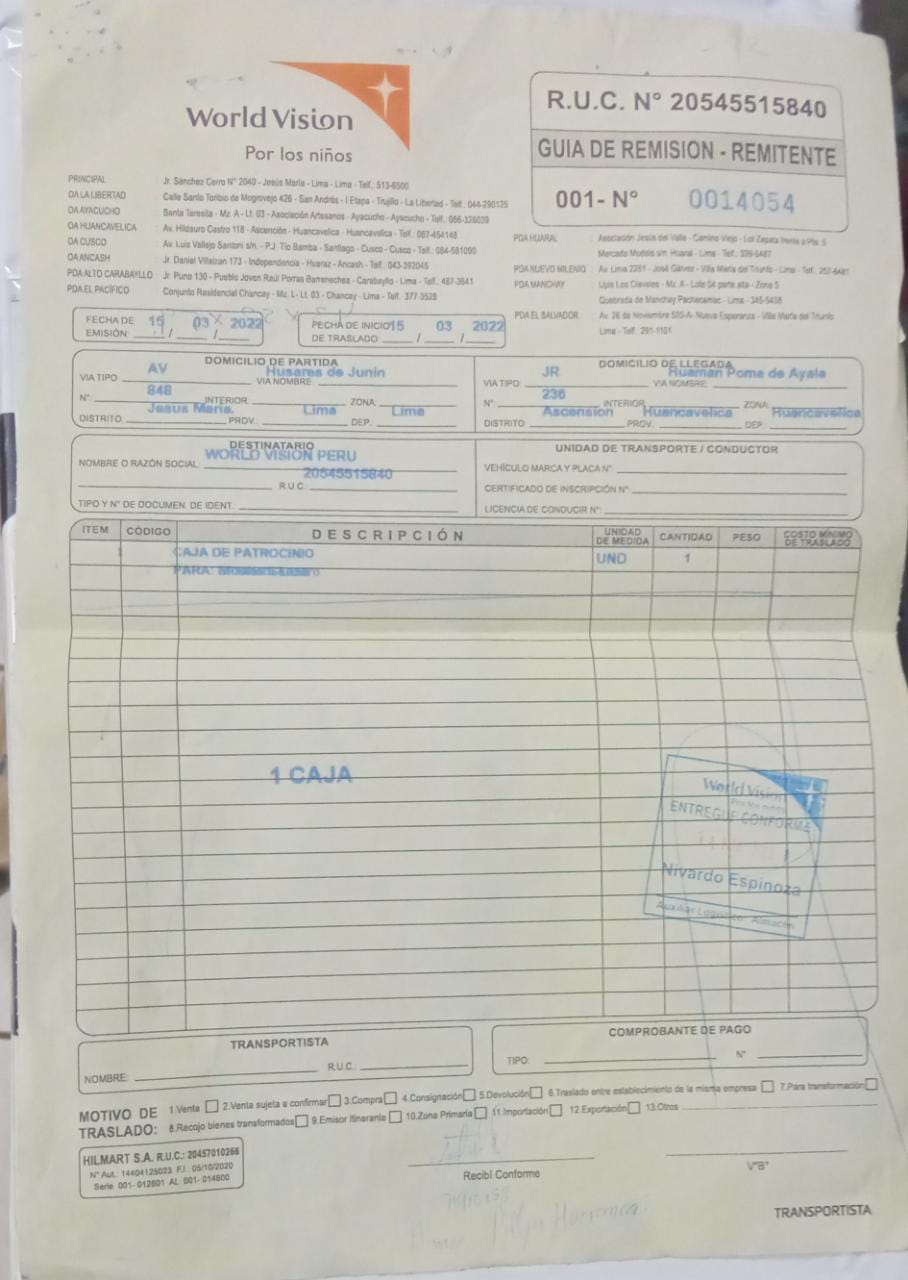 World Vision
Por los niños
R.U.C. N° 20545515840
GUIA DE REMISION - REMITENTE
001- N° 0014054
PRINCIPAL : Jr. Sánchez Cerro N° 2040 - Jesús María - Lima - Lima - Telf.: 513-6500
OA LA LIBERTAD : Calle Santo Toribio de Mogrovejo 426 - San Andrés - I Etapa - Trujillo - La Libertad - Telf.: 044-290125
OA AYACUCHO : Santa Teresita - Mz. A - Lt. 03 - Asociación Artesanos - Ayacucho - Ayacucho - Telf. 066-326039
OA HUANCAVELICA : Av. Hildauro Castro 118 - Ascención - Huancavelica - Huancavelica - Telf.: 067-454148
OA CUSCO : Av. Luis Vallejo Santoni s/n. - P.J. Tío Bamba - Santiago - Cusco - Cusco - Telf.: 084-581090
OA ANCASH : Jr. Daniel Villaizan 173 - Independencia - Huaraz - Ancash - Telf.: 043-392045
PDA ALTO CARABAYLLO : Jr. Puno 130 - Pueblo Joven Raúl Porras Barrenechea - Carabayllo - Lima - Telf.: 487-3641
PDA EL PACÍFICO : Conjunto Residencial Chancay - Mz. L - Lt. 03 - Chancay - Lima - Telf. 377-3528
PDA HUARAL : Asociación Jesús del Valle - Camino Viejo - Lot Zapata frente a Pts. 5
Mercado Modelo s/n. Huaral - Lima - Telf.: 335-5487
PDA NUEVO MILENIO : Av. Lima 2251 - José Gálvez - Villa María del Triunfo - Lima - Telf.:
PDA MANCHAY : Upis Los Claveles - Mz. A - Lote 04 parte alta - Zona 5
Quebrada de Manchay Pachacamac - Lima - 345-5438
PDA EL SALVADOR : Av. 26 de Noviembre Nueva Esperanza - Villa María del Triunfo
Lima - Telf.: 291-1101
FECHA DE EMISIÓN: 15 / 03 / 2022
FECHA DE INICIO DE TRASLADO: 15 / 03 / 2022
DOMICILIO DE PARTIDA
VIA TIPO AV VIA NOMBRE: Husares de Junin
N°: 848 INTERIOR: ZONA:
DISTRITO: Jesus Maria. PROV. Lima DEP.: Lima
DOMICILIO DE LLEGADA
VIA TIPO: JR VIA NOMBRE: Huaman Poma de Ayala
N°: 236 INTERIOR: ZONA:
DISTRITO: Ascension PROV. Huancavelica DEP. Huancavelica
DESTINATARIO
NOMBRE O RAZÓN SOCIAL: WORLD VISION PERU
R.U.C. 20545515840
TIPO Y N° DE DOCUMEN. DE IDENT.:
UNIDAD DE TRANSPORTE / CONDUCTOR
VEHÍCULO MARCA Y PLACA N°:
CERTIFICADO DE INSCRIPCIÓN N°:
LICENCIA DE CONDUCIR N°:
ITEM CÓDIGO DESCRIPCIÓN UNIDAD DE MEDIDA CANTIDAD PESO COSTO MÍNIMO DE TRASLADO
1 CAJA DE PATROCINIO UND 1
PARA:
1 CAJA
World Vision
Por los niños
ENTREGUE CONFORME
Nivardo Espinoza
Auxiliar Logístico Almacén
TRANSPORTISTA
NOMBRE: R.U.C.:
COMPROBANTE DE PAGO
TIPO: N°
MOTIVO DE TRASLADO:
1.Venta 2.Venta sujeta a confirmar 3.Compra 4.Consignación 5.Devolución 6.Traslado entre establecimiento de la misma empresa 7.Para transformación
8.Recojo bienes transformados 9.Emisor Itinerante 10.Zona Primaria 11.Importación 12.Exportación 13.Otros
HILMART S.A. R.U.C.: 20457010266
N° Aut.: 14404125023 F.I.: 05/10/2020
Serie 001- 012601 AL 001- 014600
Recibí Conforme
V°B°
TRANSPORTISTA